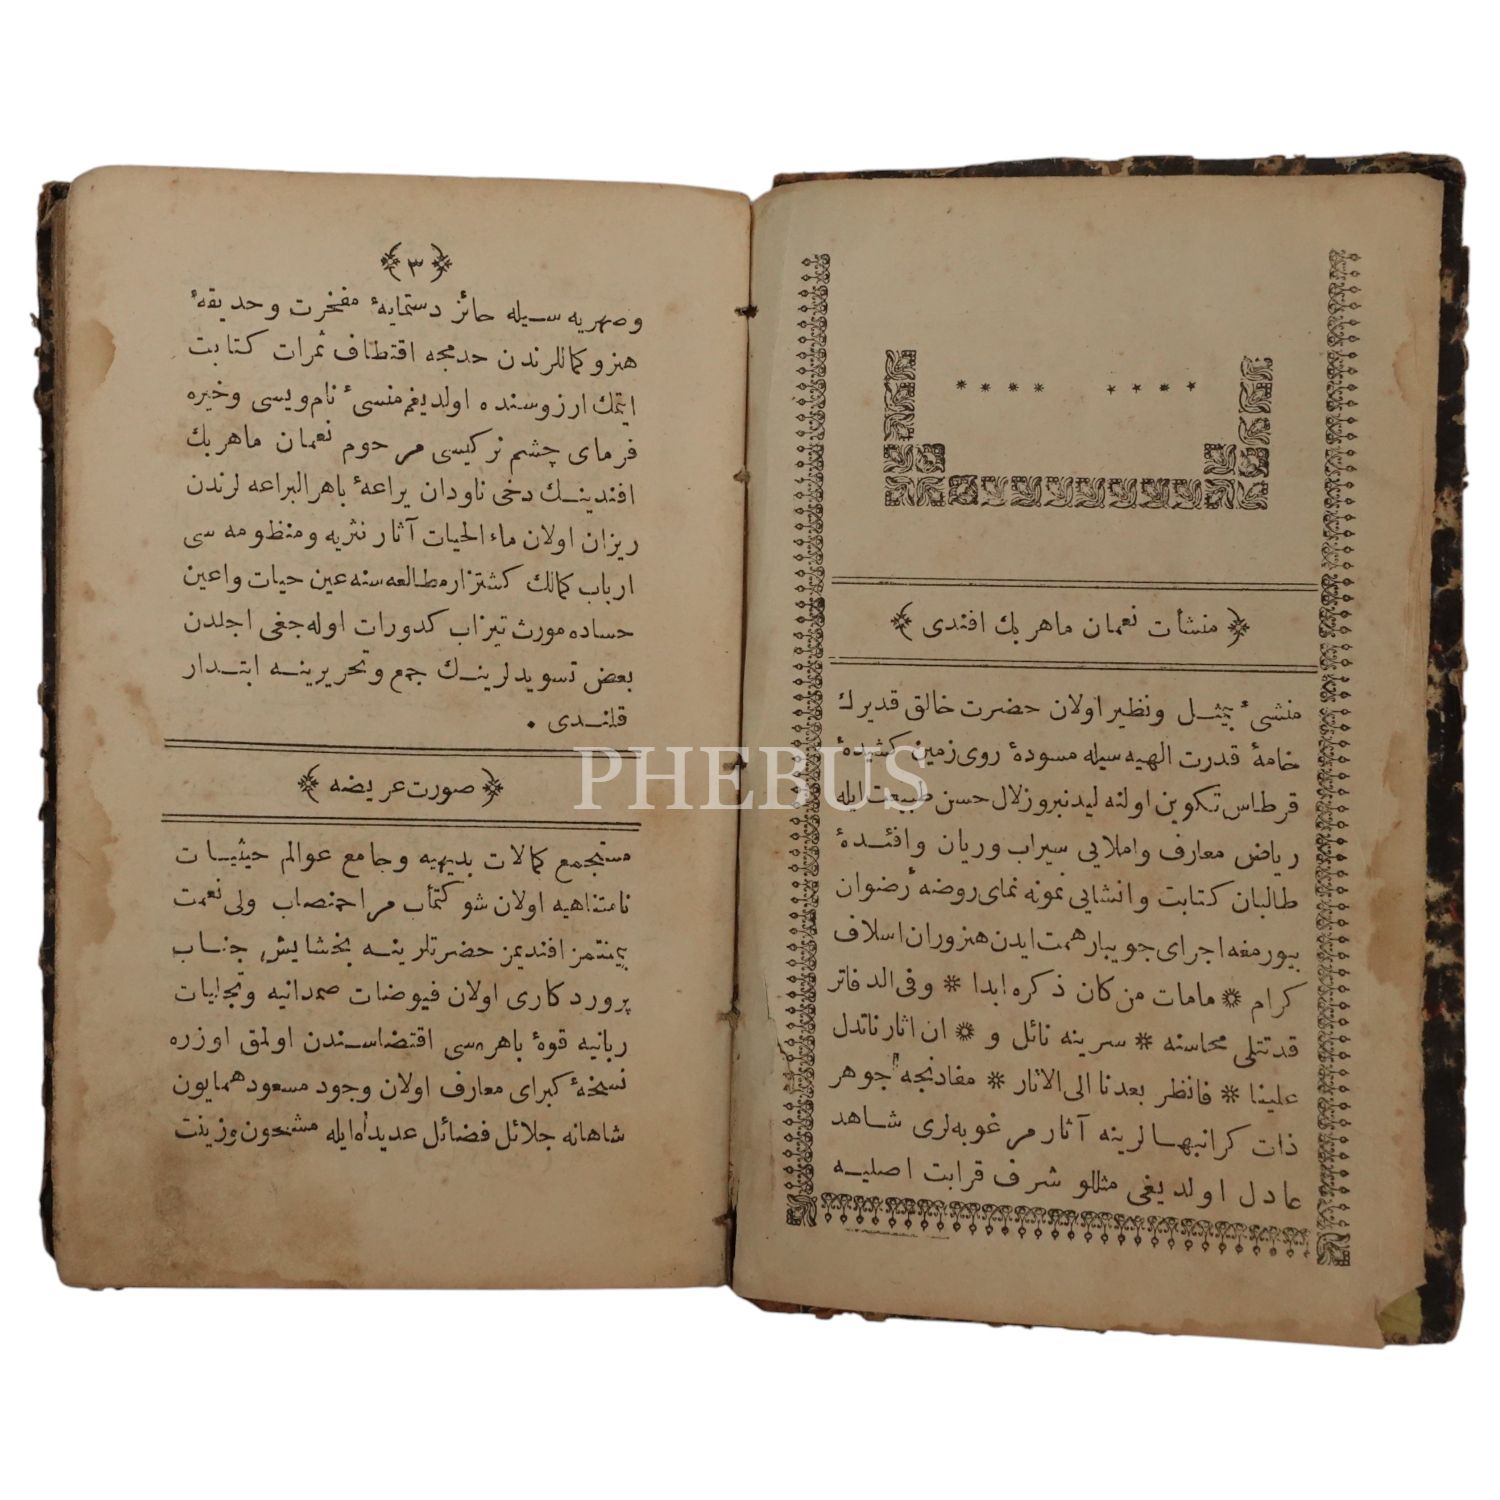 منشأت نعمان ماهر بك افندى
منشیء بیمثل ونظیر اولان حضرت خالق قدیرك
خامهٔ قدرت الهیه سیله مسودهٔ روی زمین کشیدهٔ
قرطاس تکوین اولنه لیدنبرو زلال حسن طبیعت ایله
ریاض معارف واملایی سیراب وریان وافئدهٔ
طالبان کتابت وانشایی نمونه نمای روضهٔ رضوان
بیورمغه اجرای جویبار همت ایدن هنروران اسلاف
کرام * مامات من کان ذکره ابدا * وفی الدفاتر
قدتتلی محاسنه * سرینه نائل و * ان اثارناتدل
علینا * فانظر بعدنا الی الاثار * مفادنجه جوهر
ذات کرانبهالرینه آثار مرغوبه‌لری شاهد
عادل اولدیغی مثللو شرف قرابت اصلیه
٣
وصهریه سیله حائز دستمایهٔ مفخرت وحدیقهٔ
هنروکماللرندن حدمجه اقتطاف ثمرات کتابت
ایتمك ارزوسنده اولدیغم منسیٔ نام‌ویسی وخیره
فرمای چشم نرکیسی مرحوم نعمان ماهر بك
افندینك دخی ناودان یراعهٔ باهرالبراعه لرندن
ریزان اولان ماء الحیات آثار نثریه ومنظومه سی
ارباب کمالك کشتزار مطالعه سنه عین حیات واعین
حساده مورث تیزاب کدورات اوله‌جغی اجلدن
بعض تسویدلرینك جمع وتحریرینه ابتدار
قلندی .
صورت عریضه
مستجمع کمالات بدیهیه وجامع عوالم حیثیات
نامتناهیه اولان شوکتمأب مراحمنصاب ولی نعمت
بیمنتمز افندیمز حضرتلرینه بخشایش جناب
پروردکاری اولان فیوضات صمدانیه وتجلیات
ربانیه قوهٔ باهره‌سی اقتضاسندن اولمق اوزره
نسخهٔ کبرای معارف اولان وجود مسعود همایون
شاهانه جلائل فضائل عدیده ایله مشحون وزینت
PHEBUS